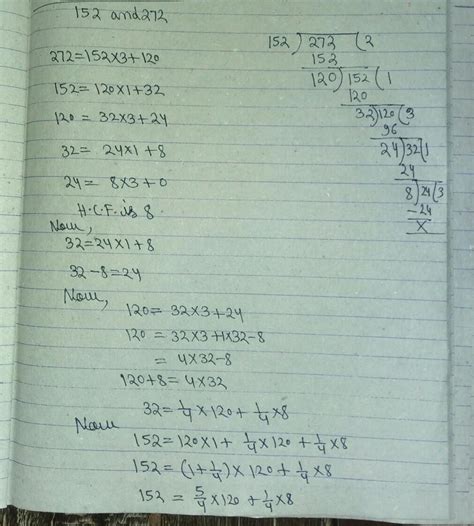 152 and 272
272=152×3+120
152=120×1+32
120=32×3+24
32=24×1+8
24=8×3+0
H.C.F. is 8
Now,
32=24×1+8
32-8=24
Now,
120=32×3+24
120=32×3+1×32-8
=4×32-8
120+8=4×32
32=1/4×120+1/4×8
Now
152=120×1+1/4×120+1/4×8
152=(1+1/4)×120+1/4×8
152=5/4×120+1/4×8
152)272(2
152
120)152(1
120
32)120(3
96
24)32(1
24
8)24(3
-24
×